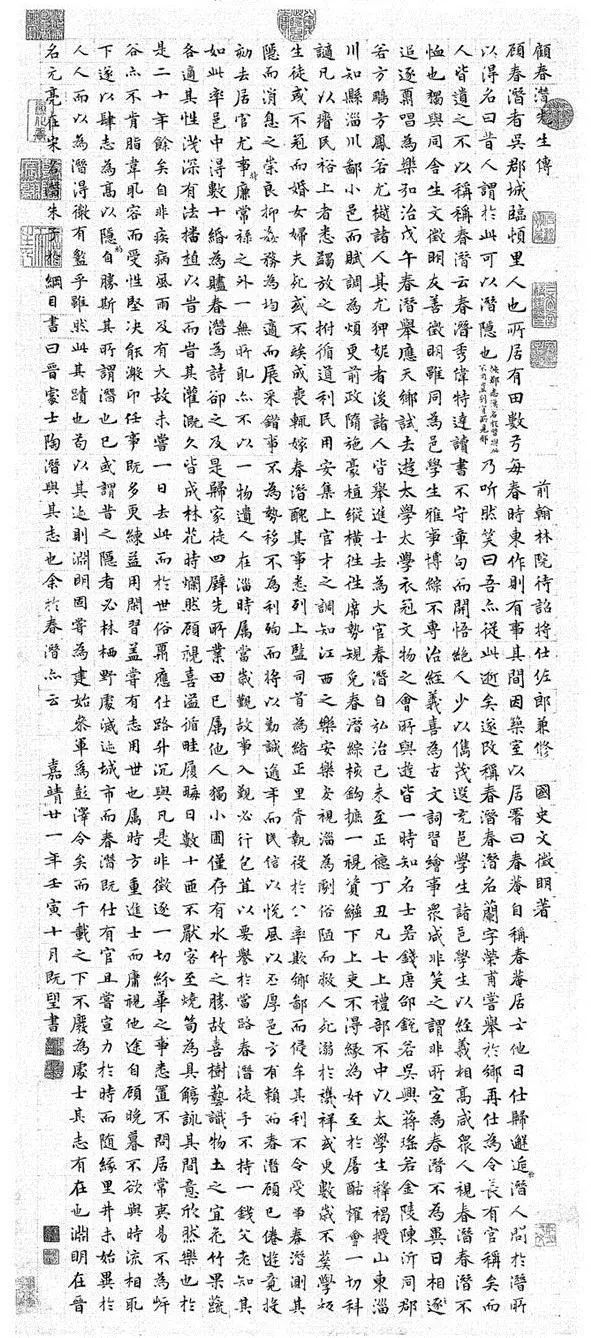 顧春潛先生傳
前翰林院待詔將仕佐郎兼修國史文徵明著
顧春潛者吳郡城臨頓里人也所居有田數弓每春時東作則有事其間因築室以居署曰春菴自稱春菴居士他日仕歸邂逅潛人問於潛所
以得名曰昔人謂於此可以潛隱也乃听然笑曰吾亦從此逝矣遂改稱春潛春潛名蘭字榮甫嘗舉於鄉再仕為令長有官稱矣而
人皆遺之不以稱稱春潛云春潛秀偉特達讀書不守章句而開悟絕人少以儁茂選充邑學生諸邑學生以經義相高咸眾人視春潛春潛不
恤也獨與同舍生文徵明友善徵明雖同為邑學生雅事博綜不專治經義喜為古文詞習繪事眾咸非笑之謂非所宜為春潛不為異日相逐
追逐賡唱為樂弘治戊午春潛舉應天鄉試去遊太學太學衣冠文物之會所與遊皆一時知名士若錢唐邵銳若吳興蔣瑤若金陵陳沂同郡
若方鵬方鳳若尤樾諸人其尤狎妮者後諸人皆舉進士去為大官春潛自弘治己未至正德丁丑凡七上禮部不中以太學生釋褐授山東淄
川知縣淄川鄙小邑而賦調為煩更前政隋施豪植縱橫徃徃席勢規免春潛綜核鈎摭一視貲繇下上吏不得緣為奸至於屠酤榷會一切科
讁凡以瘠民裕上者悉蠲放之拊循道利民用安集上官才之調知江西之樂安樂安視淄為劇俗陋而敝人死溺於禨祥或更數歲不葬學奴
生徒或不冠而婚女婦夫死或不踰成喪輒嫁春潛醜其事悉列上監司首為緒正里胥執役於公率欺鄉鄙而侵牟其利不令受事春潛測其
隱而消息之崇良抑姦務為均適而展采錯事不為勢移不為利殉而將以勤誠逾年而民信以悅風以丕厚邑方有賴而春潛顧已倦遊竟投
劾去居官尤事廉常祿之外一無所取亦不以一物遺人在淄時属當歲觀故事入覲必行苞苴以要譽於當路春潛徒手不持一錢父老知其
如此率邑中得數十緡為贐春潛為詩卻之及是歸家徒四壁先所業田已属他人獨小圃僅存有水竹之勝故喜樹藝識物土之宜花竹果蔬
各適其性淺深有法播植以旹而旹其灌溉久皆成林花時爛然顧視喜溢循畦履畮日數十匝不厭客至燒筍為具觴詠其間意欣然樂也於
是二十年餘矣自非疾病風雨及有大故未嘗一日去此而於世俗鬧應仕路升沉與凡是非徵逐一切紛華之事悉置不問居常夷易不為岍
谷亦不肯脂韋取容而受性堅决能漵卬任事既多更練益用閑習盖嘗有志用世也属時方重進士而庸視他途自顧晚暮不欲與時流相取
下遂以肆志為高以隱自勝斯其所謂潛也已或謂昔之隱者必林栖野處滅迹城市而春潛既仕有官且嘗宣力於時而随緣里井未始異於
人人而以為潛得微有盭乎雖然此其蹟也苟以其迹則淵明固嘗為建始參軍為彭澤令矣而千載之下不廢為處士其志有在也淵明在晉
名元亮在宋名潛朱子於綱目書曰晉處士陶潛與其志也余於春潛亦云
嘉靖廿一年壬寅十月既望書